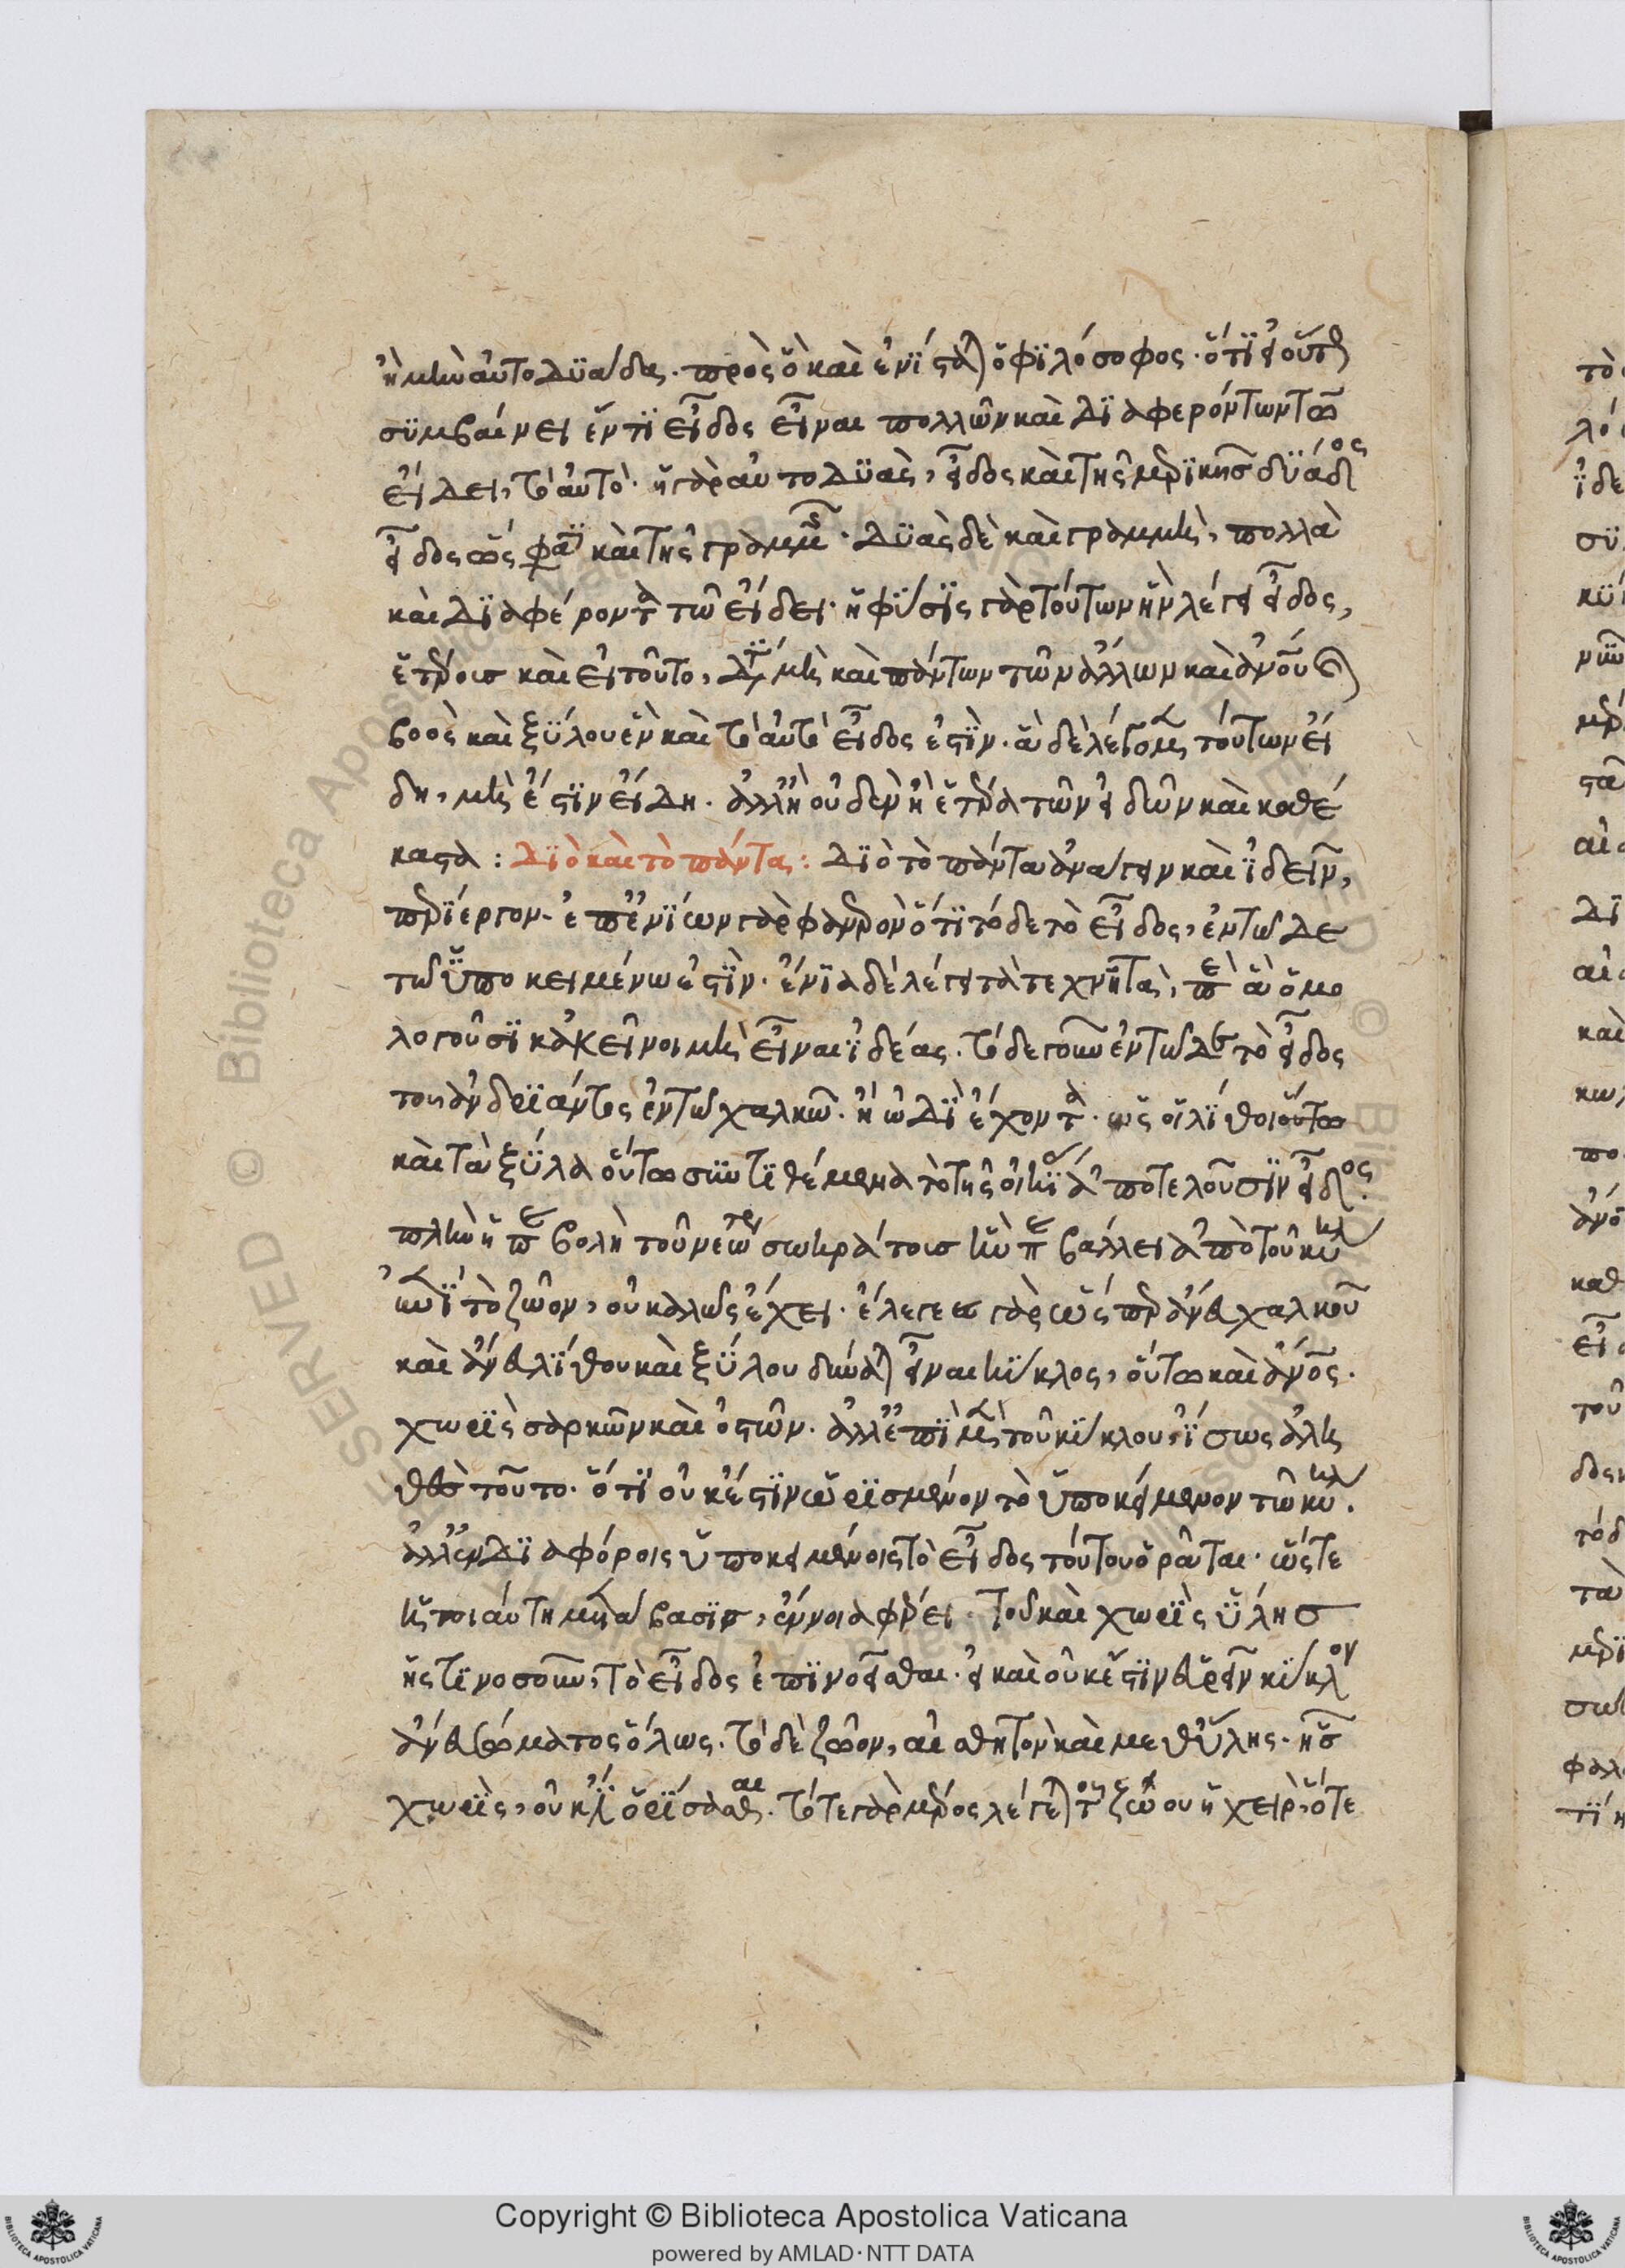 ἢ μὴν αὐτοδυάδας. πρὸς ὃ καὶ ἐνίσταται ὁ φιλόσοφος. ὅτι εἰ οὕτως
συμβαίνει ἕν τι εἶδος εἶναι πολλῶν καὶ διαφερόντων τῶ
εἴδει, τὸ αὐτό. ἡ γὰρ αὐτοδυὰς, εἶδος καὶ τῆς μερικῆς δυάδος
εἶδος ὥς φασι καὶ τῆς γραμμῆς. δυὰς δὲ καὶ γραμμὴ, πολλὰ
καὶ διαφέροντα τῶ εἴδει. ἡ φύσις γὰρ τούτων ἣν λέγει εἶδος,
ἑτέροις καὶ εἰ τοῦτο, διατί μὴ καὶ πάντων τῶν ἄλλων καὶ ἀνοῦ καὶ
βοὸς καὶ ξύλου ἓν καὶ τὸ αὐτὸ εἶδος ἐστὶν. ἃ δὲ λέγομεν τούτων εἴ
δη, μὴ ἔστιν εἴδη. ἀλλ' ἢ οὐδὲν ἢ ἕτερα τῶν εἰδῶν καὶ καθέ
καστα: διὸ καὶ τὸ πάντα: διὸ τὸ πάντα ἀνάγειν καὶ ἰδεῖν,
περίεργον. ἐπ' ἐνίων γὰρ φανερὸν ὅτι τόδε τὸ εἶδος, ἐν τῶδε
τῶ ὑποκειμένω ἐστὶν. ἔνια δὲ λέγει τὰ τεχνητὰ, ἐπεὶ ἃ ὁμο
λογοῦσι κἀκεῖνοι μὴ εἶναι ἰδέας. τόδε γοῦν ἐν τῶδε τὸ εἶδος
του ἀνδριάντος ἐν τῶ χαλκῶ. ἢ ὡδὶ ἔχοντα. ὡς οἱ λίθοι οὕτω
καὶ τὰ ξύλα οὕτω συντιθέμενα τὸ τῆς οἰκίας ἀποτελοῦσιν εἶδος.
πλὴν ἡ παραβολὴ τοῦ νεωτέρου σωκράτους ἣν παραβάλλει ἀπὸ τοῦ κύκλου
ἐπὶ τὸ ζῶον, οὐ καλῶς ἔχει. ἔλεγε γὰρ ὥςπερ ἄνευ χαλκοῦ
καὶ ἄνευ λίθου καὶ ξύλου δύναται εἶναι κύκλος, οὕτω καὶ ἄνος.
χωρὶς σαρκῶν καὶ ὀστῶν. ἀλλ' ἐπὶ μὲν τοῦ κύκλου ἴσως ἀλη
θὲς τοῦτο. ὅτι οὐκ ἔστιν ὡρισμένον τὸ ὑποκείμενον τῶ κύκλω.
ἀλλ' ἐν διαφόροις ὑποκειμένοις τὸ εἶδος τούτου ὁρᾶται. ὥςτε
ἡ τοιαύτη μετάβασις, ἔννοια φέρει τοῦ καὶ χωρὶς ὕλης
ἥς τινος οὖν, τὸ εἶδος ἐπινοεῖσθαι. εἰ καὶ οὐκ ἔστιν εὑρεῖν κύκλον
ἄνευ σώματος ὅλως. τὸ δὲ ζῶον, αἰσθητὸν καὶ μεθ' ὕλης. ἧς
χωρὶς, οὐκ ἔνι ὁρίσασθαι. τότε γὰρ μέρος λέγεται τοῦ ζώου ἡ χεὶρ, ὅτε